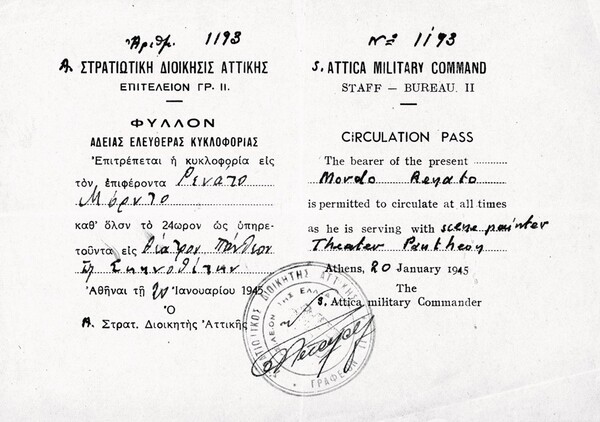 Ἀριθμ. 1193
Α. ΣΤΡΑΤΙΩΤΙΚΗ ΔΙΟΙΚΗΣΙΣ ΑΤΤΙΚΗΣ
ΕΠΙΤΕΛΕΙΟΝ ΓΡ. ΙΙ.
ΦΥΛΛΟΝ
ΑΔΕΙΑΣ ΕΛΕΥΘΕΡΑΣ ΚΥΚΛΟΦΟΡΙΑΣ
Ἐπιτρέπεται ἡ κυκλοφορία εἰς
τὸν ἐπιφέροντα Ρενάτο
Μόρντο
καθ' ὅλον τὸ 24ωρον ὡς ὑπηρε-
τοῦντα εἰς Θέατρον Πάνθεον
Σκηνοθέτην
Ἀθῆναι τῇ 20 Ἰανουαρίου 1945
Ὁ
Α. Στρατ. Διοικητὴς Ἀττικῆς
Nº 1193
S. ATTICA MILITARY COMMAND
STAFF — BUREAU. II
CIRCULATION PASS
The bearer of the present
Mordo Renato
is permitted to circulate at all times
as he is serving with scene painter
Theater Pantheon
Athens, 20 January 1945
The
S. Attica military Commander
ΣΤΡΑΤΙΩΤΙΚΟΣ ΔΙΟΙΚΗΤΗΣ ΑΤΤΙΚΗΣ
ΓΡΑΦΕΙΟΝ ΙΙ